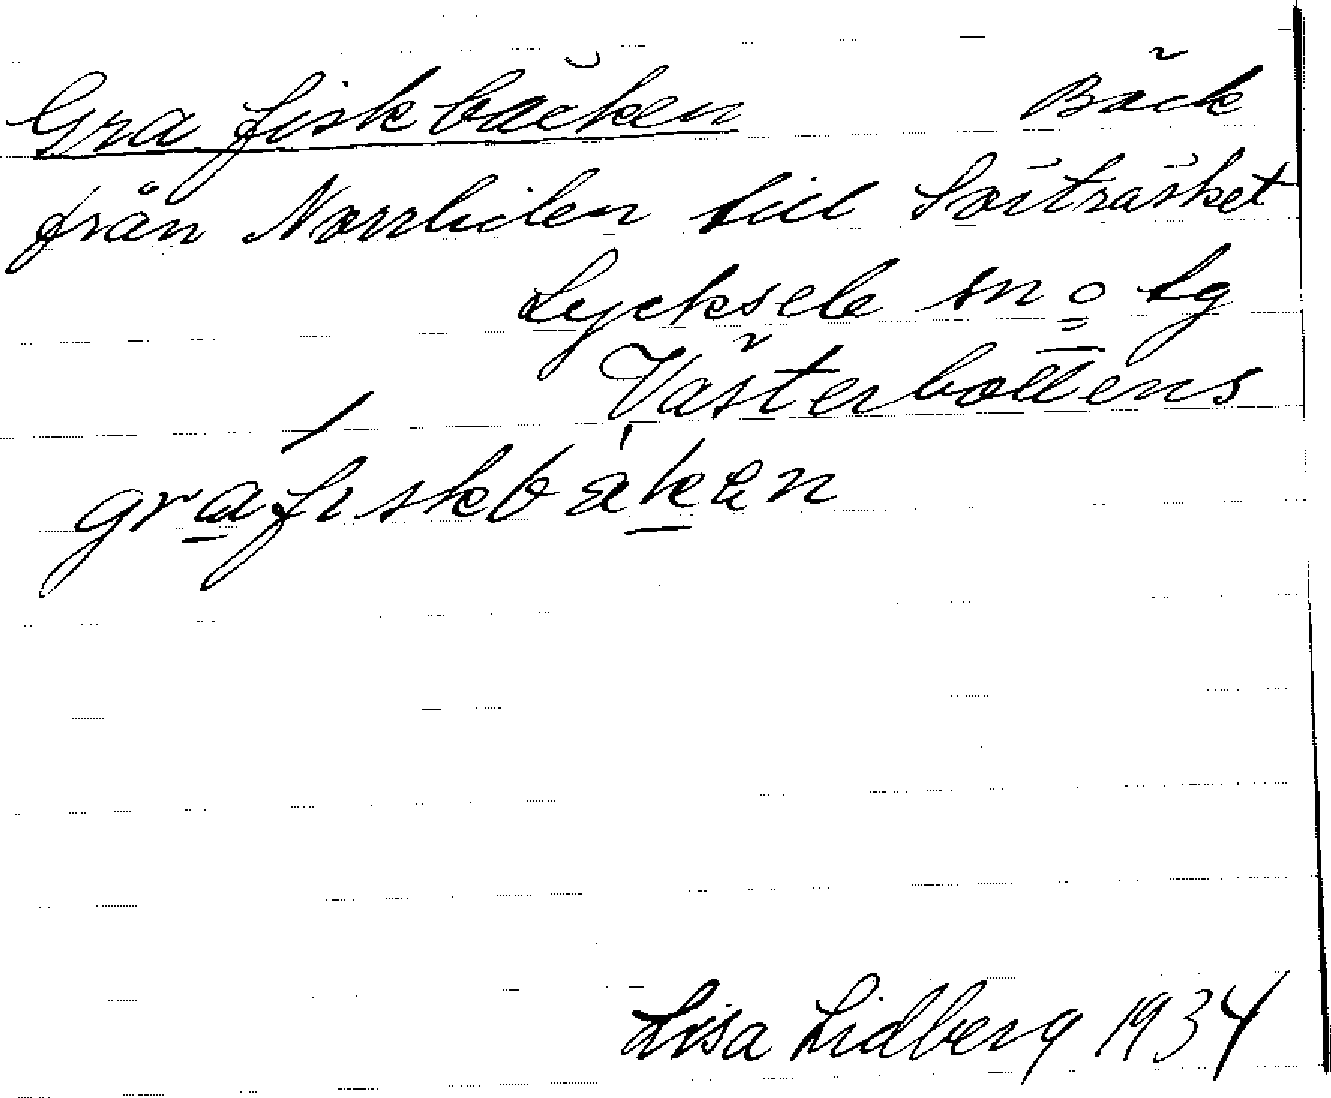 Gra fiskbäcken Bäck
från Norrliden till Sörträsket
Lycksele sn o lg
Västerbottens
grafiskbäkän
Lisa Lidberg 1934